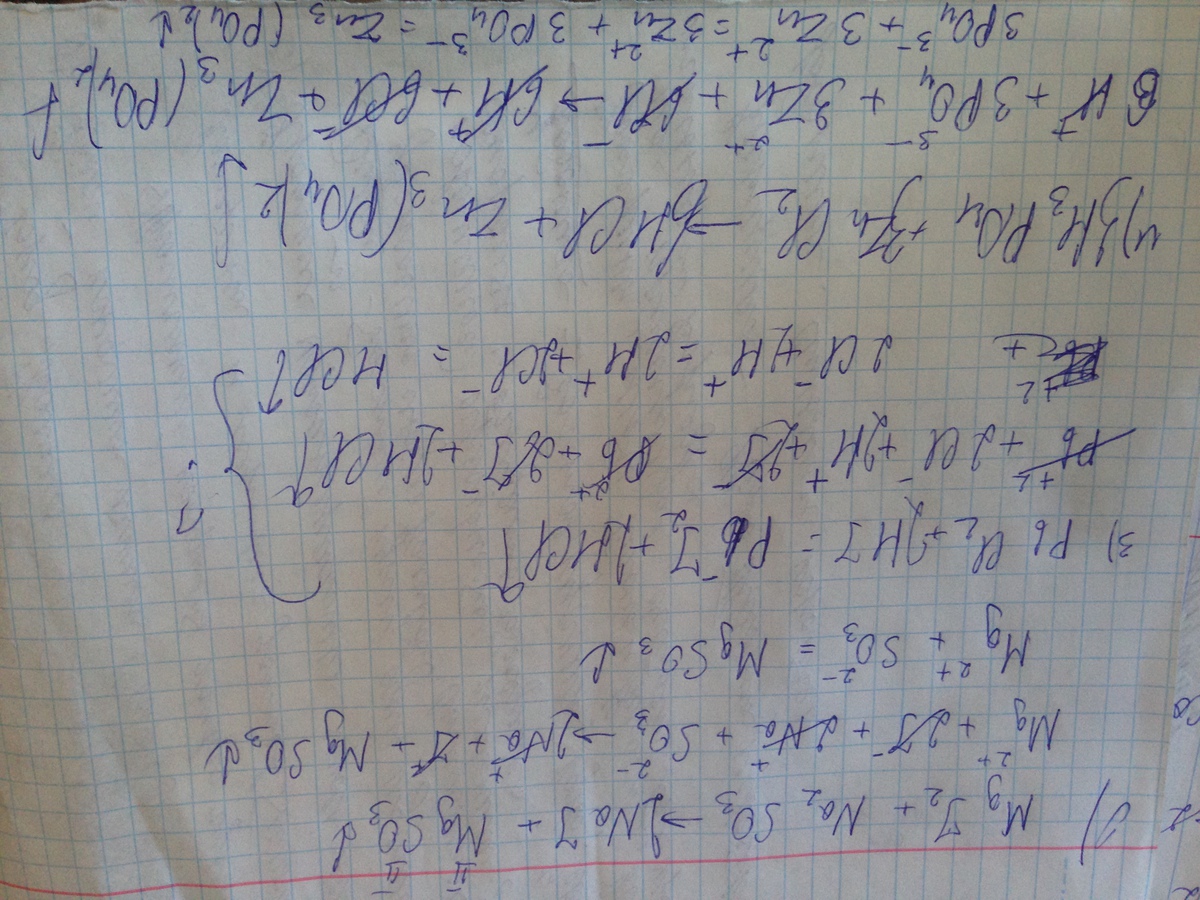 MgJ₂ + Na₂SO₃ → 2NaJ + MgSO₃↓
Mg²⁺ + 2J⁻ + 2Na⁺ + SO₃²⁻ → 2Na⁺ + J⁻ + MgSO₃↓
Mg²⁺ + SO₃²⁻ = MgSO₃↓
3) PbCl₂ + 2HJ = PbJ₂ + 2HCl↑
Pb²⁺ + 2Cl⁻ + 2H⁺ + 2J⁻ = Pb²⁺ + 2J⁻ + 2HCl↑
2Cl⁻ + H⁺ = 2H⁺ + 2Cl⁻ = HCl↑
4) 2H₃PO₄ + 3ZnCl₂ → 6HCl + Zn₃(PO₄)₂↓
6H⁺ + 3PO₄³⁻ + 3Zn²⁺ + 6Cl⁻ → 6H⁺ + 6Cl⁻ + Zn₃(PO₄)₂↓
3PO₄³⁻ + 3Zn²⁺ = 3Zn²⁺ + 3PO₄³⁻ = Zn₃(PO₄)₂↓